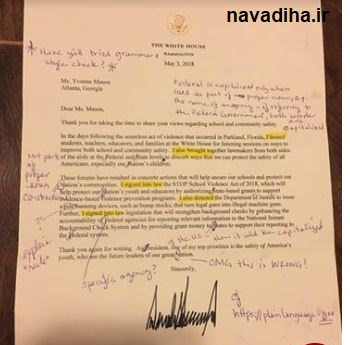 navadiha.ir
* Have y'all tried grammar &
style check? *
THE WHITE HOUSE
WASHINGTON
May 3, 2018
Ms. Yvonne Mason
Atlanta, Georgia
Federal is capitalized only when
used as part of proper noun, e.g.
the name of an agency - if referring to
the Federal Government, both words
capitalized
Dear Ms. Mason,
Thank you for taking the time to share your views regarding school and community safety.
In the days following the senseless act of violence that occurred in Parkland, Florida, I hosted
students, teachers, educators, and families at the White House for listening sessions on ways to
improve both school and community safety. I also brought together lawmakers from both sides
of the aisle at the Federal and State levels to discuss ways that we can protect the safety of all
Americans, especially our Nation's children.
not part
of
proper
noun
construction
These forums have resulted in concrete actions that will help secure our schools and protect our
Nation's communities. I signed into law the STOP School Violence Act of 2018, which will
help protect our Nation's youth and educators by authorizing State-based grants to support
evidence-based violence prevention programs. I also directed the Department of Justice to issue
a rule banning devices, such as bump stocks, that turn legal guns into illegal machine guns.
Further, I signed into law legislation that will strengthen background checks by enhancing the
accountability of Federal agencies for reporting relevant information to the National Instant
Background Check System and by providing grant money to States to support their reporting to
the Federal system.
explain
"rule"
of the US - then it'd be capitalized
Thank you again for writing. As President, one of my top priorities is the safety of America's
youth, who are the future leaders of our great Nation.
OMG this is WRONG!
specific agency?
Sincerely,
https://plainlanguage.gov